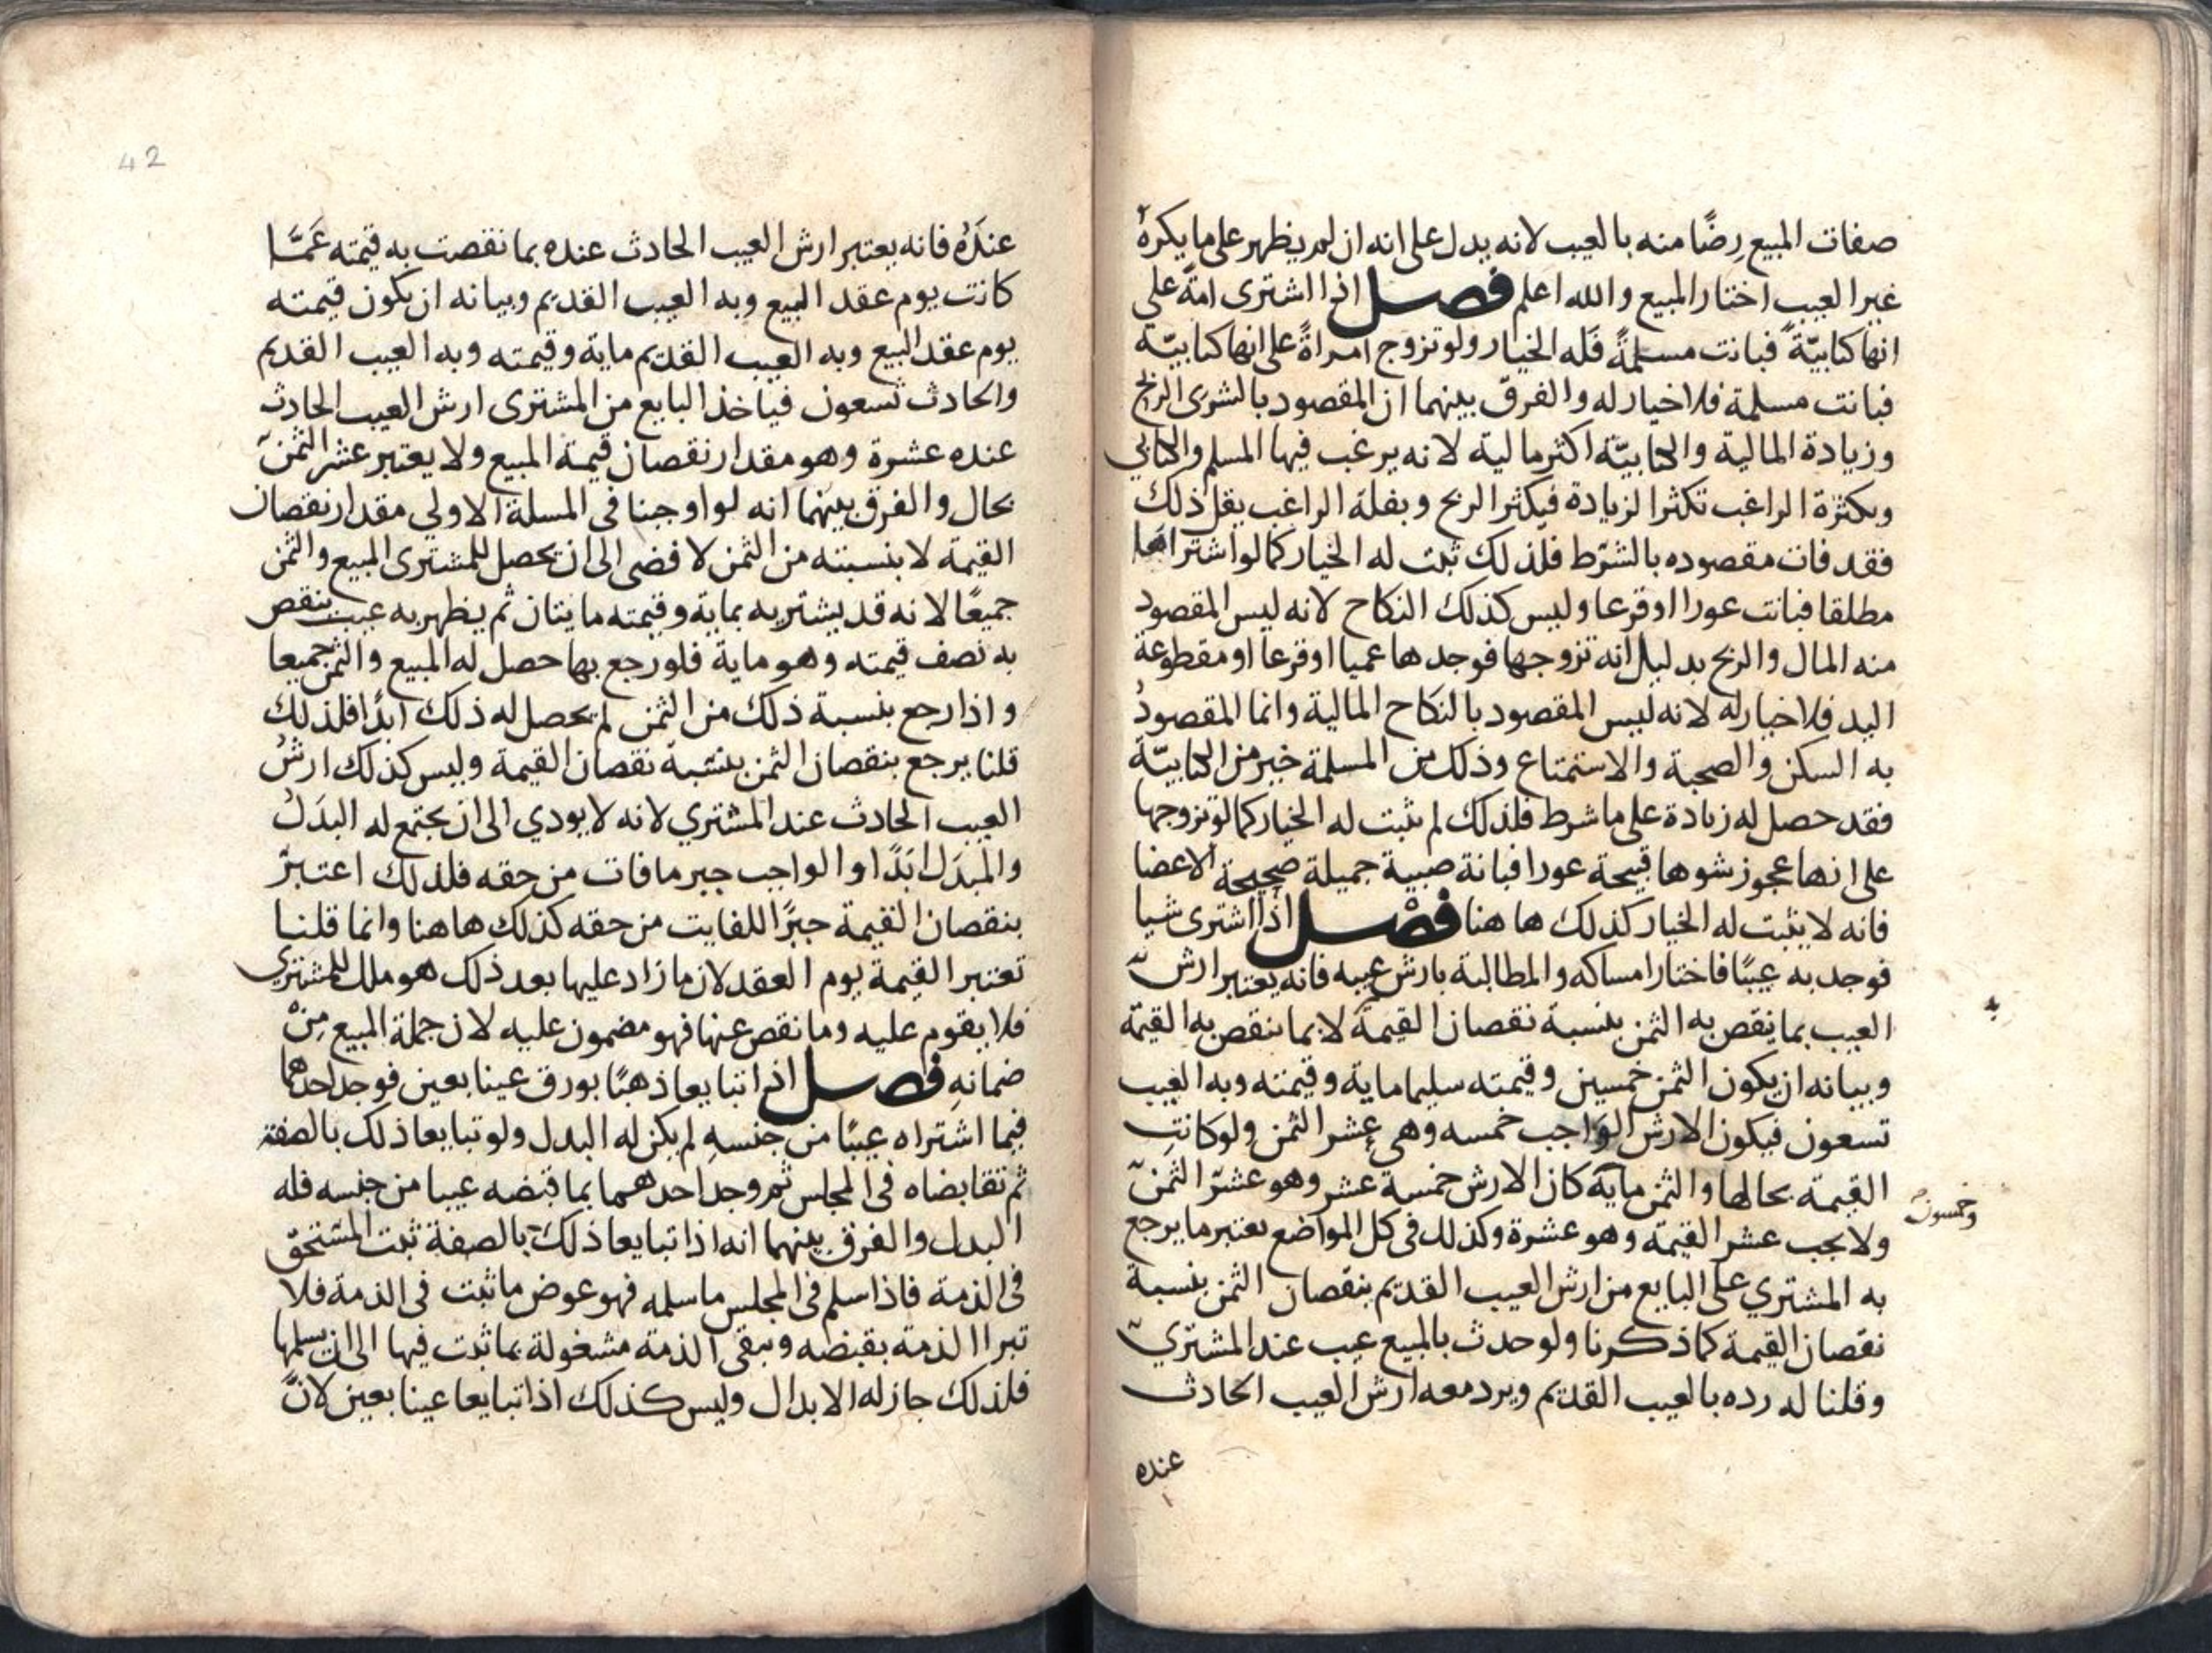 صفات المبيع رضًا منه بالعيب لانه يدل على انه ان لم يظهر على ما يكره
غير العيب اختار المبيع والله اعلم فصل اذا اشترى امةً على
انها كتابيّةً فبانت مسلمةً فله الخيار ولو تزوج امراةً على انها كتابيّة
فبانت مسلمة فلا خيار له والفرق بينهما ان المقصود بالشرى الربح
وزيادة المالية والكتابيّة اكثر مالية لانه يرغب فيها المسلم والكتابي
وبكثرة الراغب تكثر الزيادة فيكثر الربح وبقلة الراغب يقل ذلك
فقد فات مقصوده بالشرط فلذلك ثبت له الخيار كما لو اشتراها
مطلقا فبانت عورا او قرعا وليس كذلك النكاح لانه ليس المقصود
منه المال والربح بدليل انه تزوجها فوجدها عميا او قرعا او مقطوعة
اليد فلا خيار له لانه ليس المقصود بالنكاح المالية وانما المقصودُ
به السكن والصحبة والاستمتاع وذلك من المسلمة خير من الكتابيّة
فقد حصل له زيادة على ما شرط فلذلك لم يثبت له الخيار كما لو تزوجها
على انها عجوز شوها قبيحة عورا فبانة صبية جميلة صحيحة الاعضا
فانه لا يثبت له الخيار كذلك ها هنا فصْل اذا اشترى شيا
فوجد به عيبًا فاختار امساكه والمطالبة بارش عيبه فانه يعتبر ارش
العيب بما ينقص به الثمن بنسبة نقصان القيمة لا بما ينقص به القيمة
وبيانه ان يكون الثمن خمسين وقيمته سليما ماية وقيمته وبه العيب
تسعون فيكون الارش الواجب خمسه وهي عشر الثمن ولو كانت
القيمة بحالها والثمن ماية كان الارش خمسة عشر وهو عشر الثمن
وخمسون
ولا يجب عشر القيمة وهو عشرة وكذلك في كل المواضع نعتبر ما يرجع
به المشتري على البايع من ارش العيب القديم بنقصان الثمن بنسبة
نقصان القيمة كما ذكرنا ولو حدث بالمبيع عيب عند المشتري
وقلنا له رده بالعيب القديم ويرد معه ارش العيب الحادث
عنده
42
عندَهُ فانه يعتبر ارش العيب الحادث عنده بما نقصت به قيمته عَمَّا
كانت يوم عقد البيع وبه العيب القديم وبيانه ان يكون قيمته
يوم عقد البيع وبه العيب القديم ماية وقيمته وبه العيب القديم
والحادث تسعون فياخذ البايع من المشترى ارش العيب الحادث
عنده عشرة وهو مقدار نقصان قيمة المبيع ولا يعتبر عشر الثمن
بحال والفرق بينهما انه لو اوجبنا في المسلة الاولي مقدار نقصان
القيمة لا بنسبته من الثمن لافضى الى ان يحصل للمشترى المبيع والثمن
جميعًا لانه قد يشتريه بماية وقيمته مايتان ثم يظهر به عيب ينقص
به نصف قيمته وهو ماية فلو رجع بها حصل له المبيع والثمن جميعا
واذا رجع بنسبة ذلك من الثمن لم يحصل له ذلك ابدًا فلذلك
قلنا يرجع بنقصان الثمن بنسبة نقصان القيمة وليس كذلك ارشُ
العيب الحادث عند المشتري لانه لا يودي الى ان يجتمع له البدَلُ
والمبدَل ابدًا والواجب جبر ما فات من حقه فلذلك اعتبر
بنقصان القيمة جبرًا للفايت من حقه كذلك هاهنا وانما قلنا
تعتبر القيمة يوم العقد لان ما زاد عليها بعد ذلك هو ملك للمشتري
فلا يقوم عليه وما نقص عنها فهو مضمون عليه لان جملة المبيع مِنْ
ضمانهِ فصل اذا تبايعا ذهبًا بورق عينا بعين فوجد احدهما
فيما اشتراه عيبًا من جنسهِ لم يكن له البدل ولو تبايعا ذلك بالصفة
ثم تقابضاه في المجلس ثم وجد احدهما بما قبضه عيبا من جنسه فله
البدل والفرق بينهما انه اذا تبايعا ذلك بالصفة ثبت المستحق
في الذمة فاذا سلم في المجلس ما سلمه فهو عوض ما ثبت في الذمة فلا
تبرا الذمة بقبضه وتبقى الذمة مشغولة بما ثبت فيها الى ان يسلمها
فلذلك جاز له الابدال وليس كذلك اذا تبايعا عينا بعين لانَّ